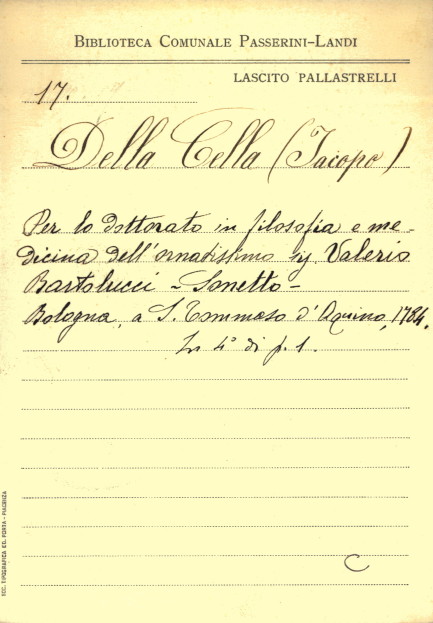 BIBLIOTECA COMUNALE PASSERINI-LANDI
LASCITO PALLASTRELLI
17.
Della Cella (Jacopo)
Per lo dottorato in filosofia e me-
dicina dell'ornatissimo sig Valerio
Bartolucci - Sonetto -
Bologna, a S. Tommaso d'Aquino, 1784.
In 4° di p. 1.
C
SOC. TIPOGRAFICA ED. PORTA - PIACENZA